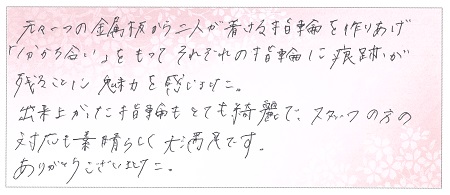 元々一つの金属板から二人が着ける指輪を作りあげ
「分かち合い」をもって それぞれの指輪に痕跡が
残ることに 魅力を感じました。
出来上がった指輪もとても綺麗で、スタッフの方の
対応も素晴らしく 大満足です。
ありがとうございました。